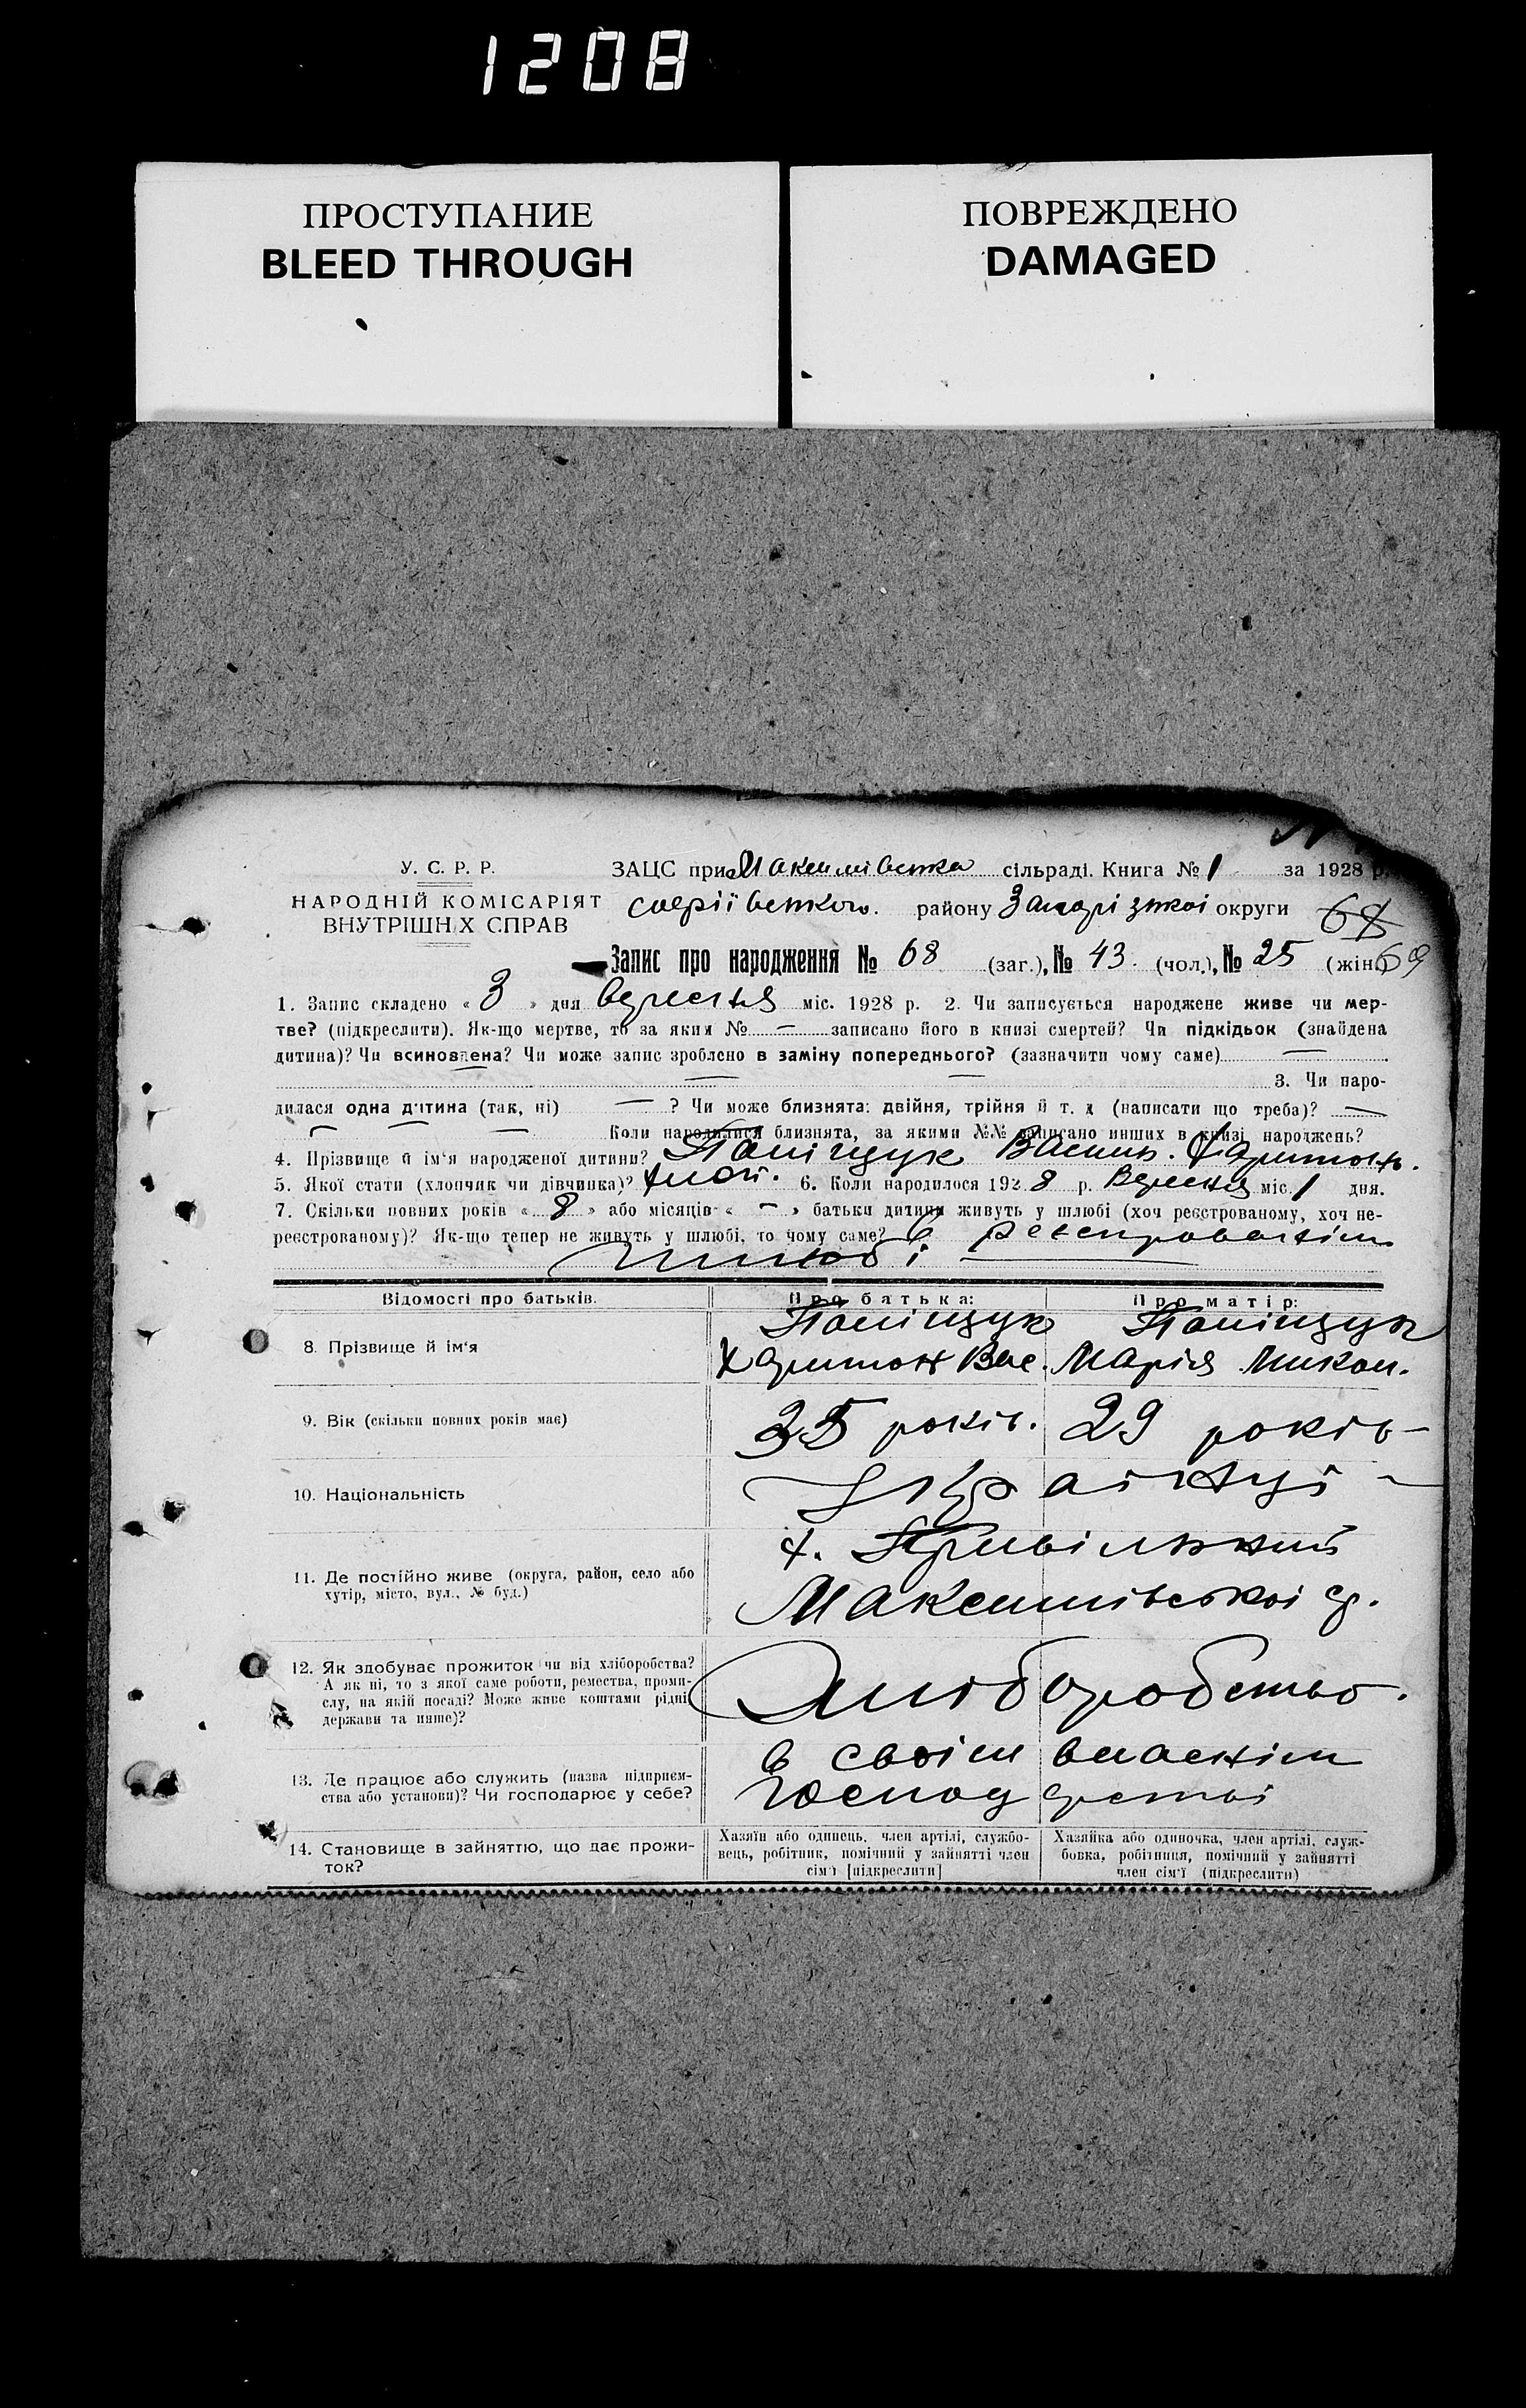 1208
ПРОСТУПАНИЕ
BLEED THROUGH
ПОВРЕЖДЕНО
DAMAGED
У. С. Р. Р.
НАРОДНІЙ КОМІСАРІЯТ
ВНУТРІШНІХ СПРАВ
ЗАЦС при Максимівська сільраді. Книга № 1 за 1928 р.
району Запорізької округи 68
Запис про народження № 68 (заг.), № 43. (чол.), № 25 (жін.) 69
1. Запис складено « 3 » дня Вересня міс. 1928 р. 2. Чи записується народжене живе чи мер-
тве? (підкреслити). Як-що мертве, то за яким № — записано його в книзі смертей? Чи підкідьок (знайдена
дитина)? Чи всиновлена? Чи може запис зроблено в заміну попереднього? (зазначити чому саме) —
— — 3. Чи наро-
дилася одна дитина (так, ні) — ? Чи може близнята: двійня, трійня й т. д (написати що треба)? —
— — — Коли народилися близнята, за якими №№ записано инших в книзі народжень?
4. Прізвище й ім'я народженої дитини? Поліщук Василь. Харитон.
5. Якої стати (хлопчик чи дівчинка)? 6. Коли народилося 1928 р. Вересня міс. 1 дня.
7. Скільки повних років « 8 » або місяців « — » батьки дитини живуть у шлюбі (хоч реєстрованому, хоч не-
реєстрованому)? Як-що тепер не живуть у шлюбі, то чому саме? в
шлюбі —
Відомості про батьків.
Про батька:
Про матір:
8. Прізвище й ім'я
Поліщук
Харитон Вас.
Поліщук
Марія Микол.
9. Вік (скільки повних років має)
35 років.
29 років —
10. Національність
Українці —
11. Де постійно живе (округа, район, село або
хутір, місто, вул., № буд.)
х. Привільний
Максимівської ср.
12. Як здобуває прожиток чи від хліборобства?
А як ні, то з якої саме роботи, ремества, проми-
слу, на якій посаді? Може живе коштами рідні,
держави та инше)?
Хліборобство.
13. Де працює або служить (назва підприєм-
ства або установи)? Чи господарює у себе?
в своїм власнім
14. Становище в зайняттю, що дає прожи-
ток?
Хазяїн або одинець, член артілі, службо-
вець, робітник, помічний у зайнятті член
сім'ї [підкреслити]
Хазяйка або одиночка, член артілі, служ-
бовка, робітниця, помічний у зайнятті
член сім'ї (підкреслити)